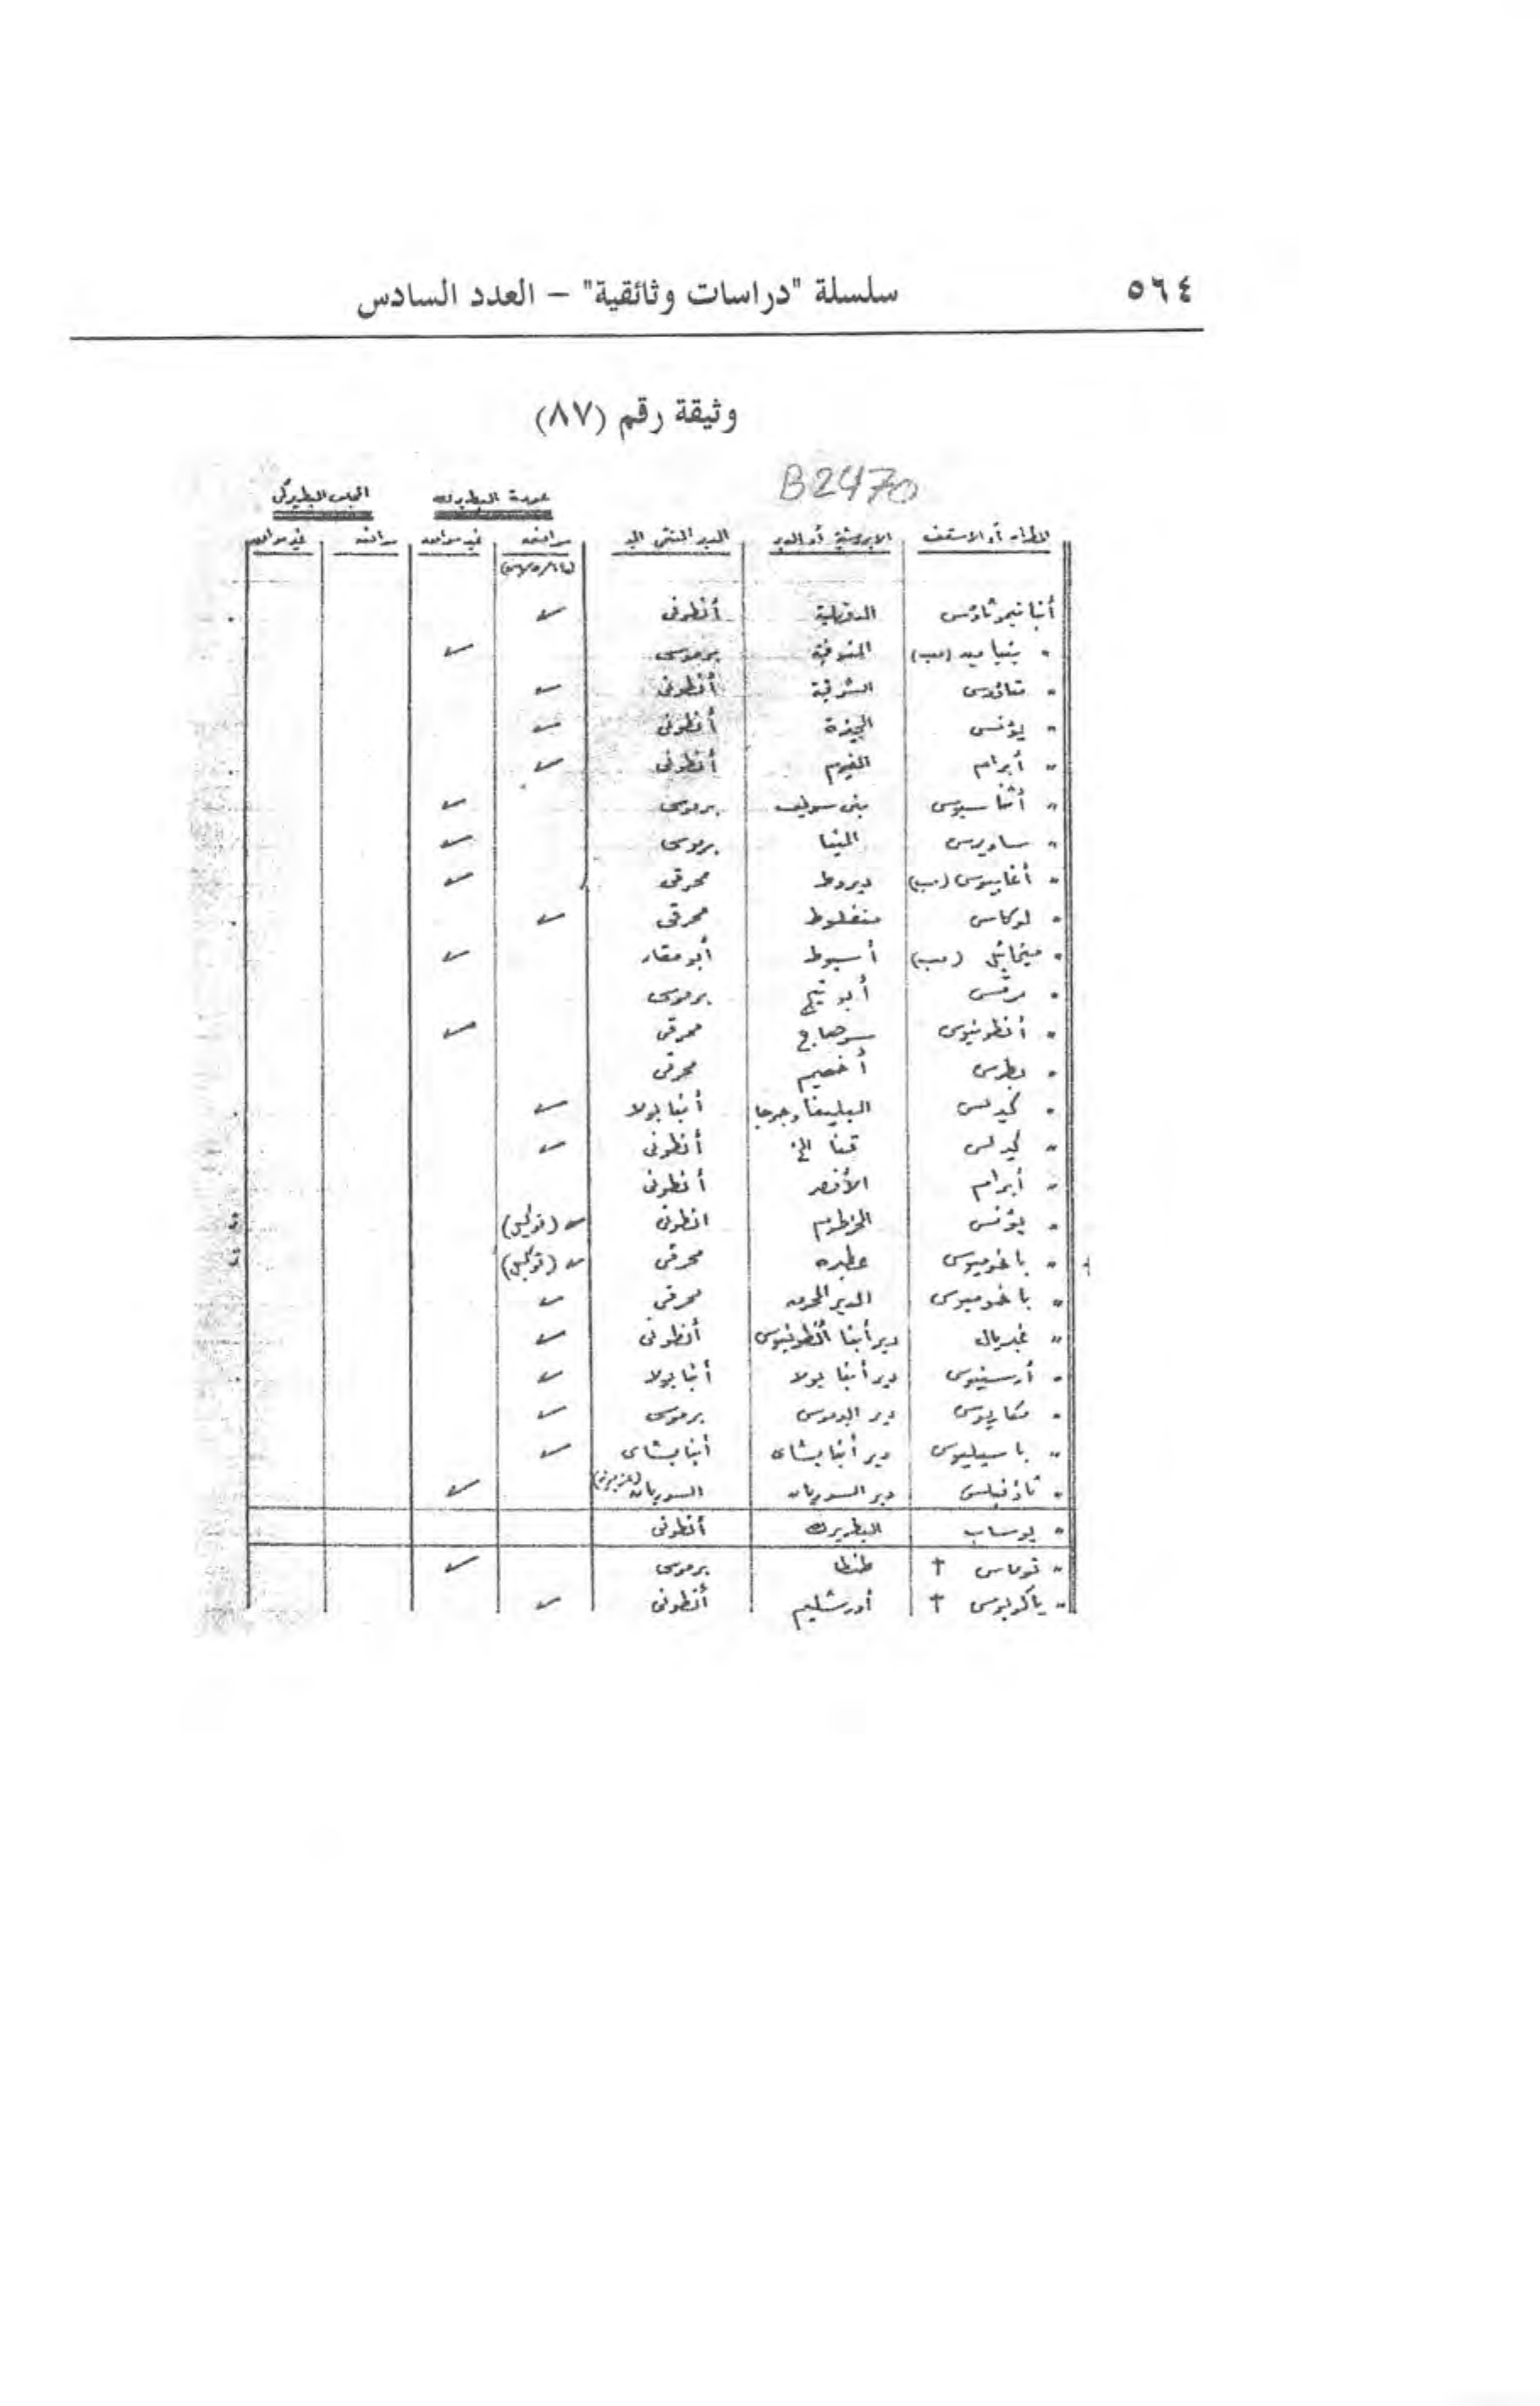 ٥٦٤ سلسلة "دراسات وثائقية" – العدد السادس
وثيقة رقم (٨٧)
B2470
عودة البطريرك المجلس البطريركى
المطران أو الاسقف الابروشية أو الدير الدير المنتمى اليه موافق غير موافق موافق غير موافق
أنبا تيموثاوس الدقهلية أنطونى ✓
" بنيامين (مب) المنوفية برموسى ✓
" متاؤس الشرقية أنطونى ✓
" يؤنس الجيزة أنطونى ✓
" أبرام الفيوم أنطونى ✓
" أثناسيوس بنى سويف برموسى ✓
" ساويرس المنيا برموسى ✓
" أغابيوس (مب) ديروط محرقى ✓
" لوكاس منفلوط محرقى ✓
" ميخائيل (مب) أسيوط أبو مقار ✓
" مرقس أبو تيج برموسى
" أنطونيوس سوهاج محرقى ✓
" بطرس أخميم محرقى
" كيرلس البلينا وجرجا أنبا بولا ✓
" كيرلس قنا الخ أنطونى ✓
" أبرام الأقصر أنطونى
" يؤنس الخرطوم انطونى ✓ (توكيل)
" باخوميوس عطبره محرقى ✓ (توكيل)
" باخوميوس الدير المحرق محرقى ✓
" غبريال دير أنبا أنطونيوس أنطونى ✓
" أرسينيوس دير أنبا بولا أنبا بولا ✓
" مكاريوس دير البرموس برموسى ✓
" باسيليوس دير أنبا بشاى أنبا بشاى ✓
" ثاؤفيلس دير السوريان السوريان ✓
" يوساب البطريرك أنطونى
" توماس † طنطا برموسى ✓
" ياكوبوس † أورشليم أنطونى ✓